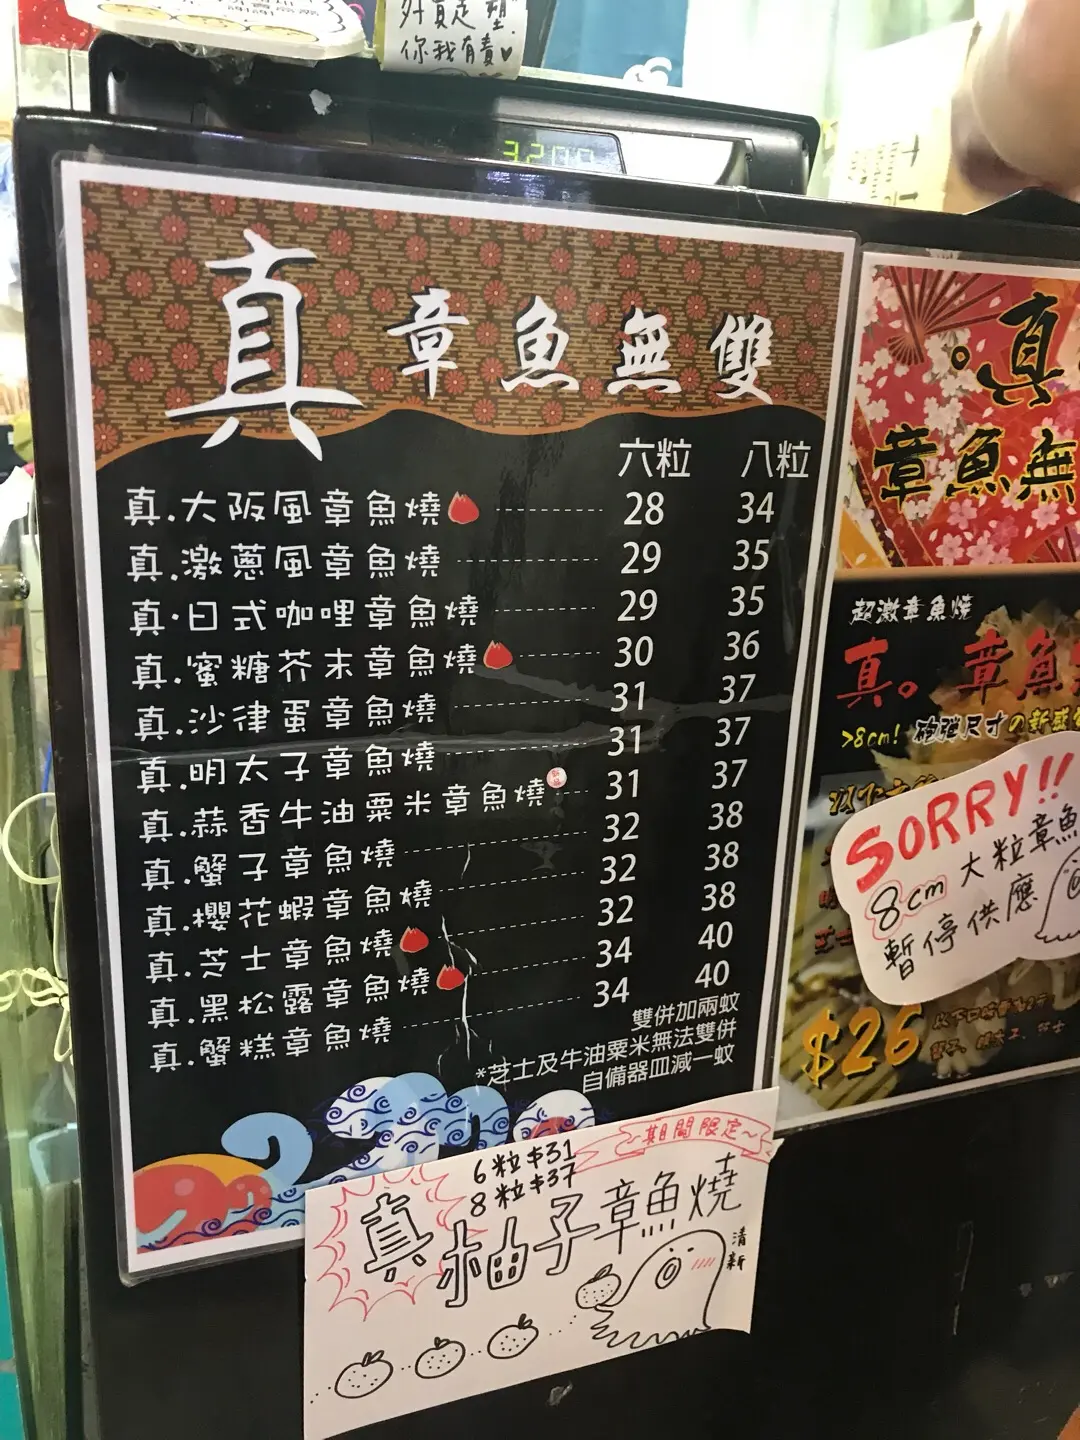 你我有責♥
真
章魚無雙
六粒 八粒
真.大阪風章魚燒 28 34
真.激蔥風章魚燒 29 35
真.日式咖哩章魚燒 29 35
真.蜜糖芥末章魚燒 30 36
真.沙律蛋章魚燒 31 37
真.明太子章魚燒 31 37
真.蒜香牛油粟米章魚燒 31 37
真.蟹子章魚燒 32 38
真.櫻花蝦章魚燒 32 38
真.芝士章魚燒 32 38
真.黑松露章魚燒 34 40
真.蟹糕章魚燒 34 40
雙併加兩蚊
*芝士及牛油粟米無法雙併
自備器皿減一蚊
~期間限定~
6粒$31
8粒$37
真柚子章魚燒
清新
真
章魚無
超激章魚燒
真。章魚
>8cm! 砲彈尺寸の新感
SORRY!!
8cm大粒章魚
暫停供應
$26